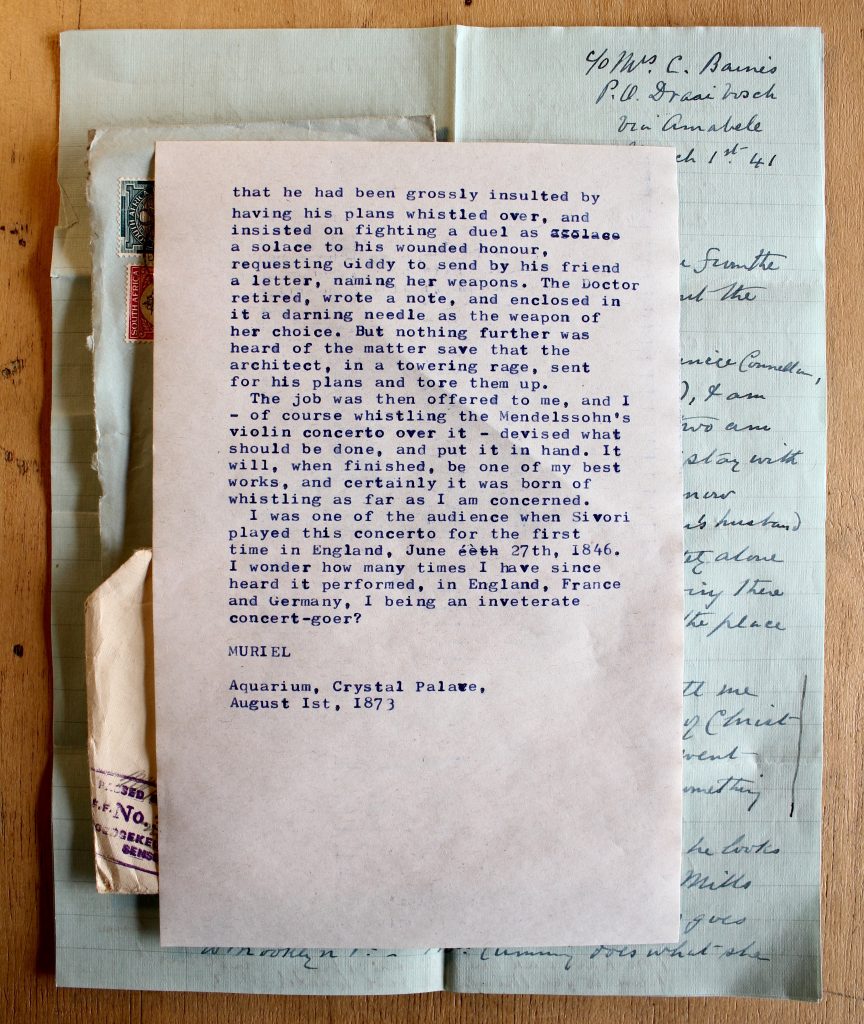 c/o Mrs. C. Baines
P.O. Draaibosch
via Amabele
ch 1st 41
that he had been grossly insulted by
having his plans whistled over, and
insisted on fighting a duel as asolace
a solace to his wounded honour,
requesting Giddy to send by his friend
a letter, naming her weapons. The Doctor
retired, wrote a note, and enclosed in
it a darning needle as the weapon of
her choice. But nothing further was
heard of the matter save that the
architect, in a towering rage, sent
for his plans and tore them up.
The job was then offered to me, and I
- of course whistling the Mendelssohn's
violin concerto over it - devised what
should be done, and put it in hand. It
will, when finished, be one of my best
works, and certainly it was born of
whistling as far as I am concerned.
I was one of the audience when Sivori
played this concerto for the first
time in England, June éèth 27th, 1846.
I wonder how many times I have since
heard it performed, in England, France
and Germany, I being an inveterate
concert-goer?
MURIEL
Aquarium, Crystal Palave,
August 1st, 1873
SOUTH AFRICA
PASSED
No.
from the
the
Connellan,
& am
two am
stay with
now
husband
alone
there
the place
me
of Christ
event
something
he looks
Mills
goes
Brooklyn
Cumming does what she